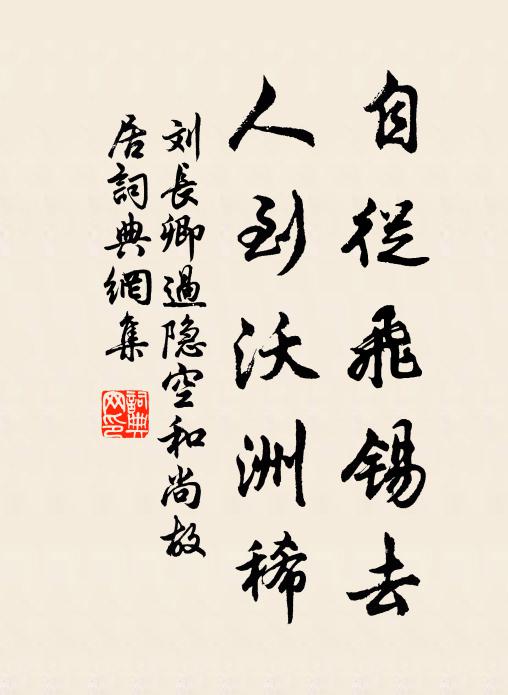 自從飛錫去
人到沃洲稀
刘長卿過隐空和尚故
居詞典網集
詞典
网印